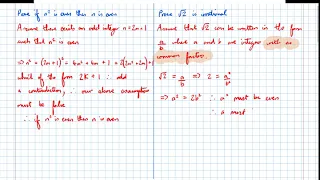 Prove if n² is even then n is even
Assume there exists an odd integer n = 2m+1
such that n² is even
⇒ n² = (2m+1)² = 4m² + 4m + 1 = 2(2m²+2m)+1
which of the form 2k+1 ∴ odd
a contradiction, ∴ our above assumption
must be false
∴ if n² is even then n is even
Prove √2 is irrational
Assume that √2 can be written in the form
a/b where a and b are integers with no
common factors.
√2 = a/b ⇒ 2 = a²/b²
⇒ a² = 2b² ∴ a² must be even
∴ a must